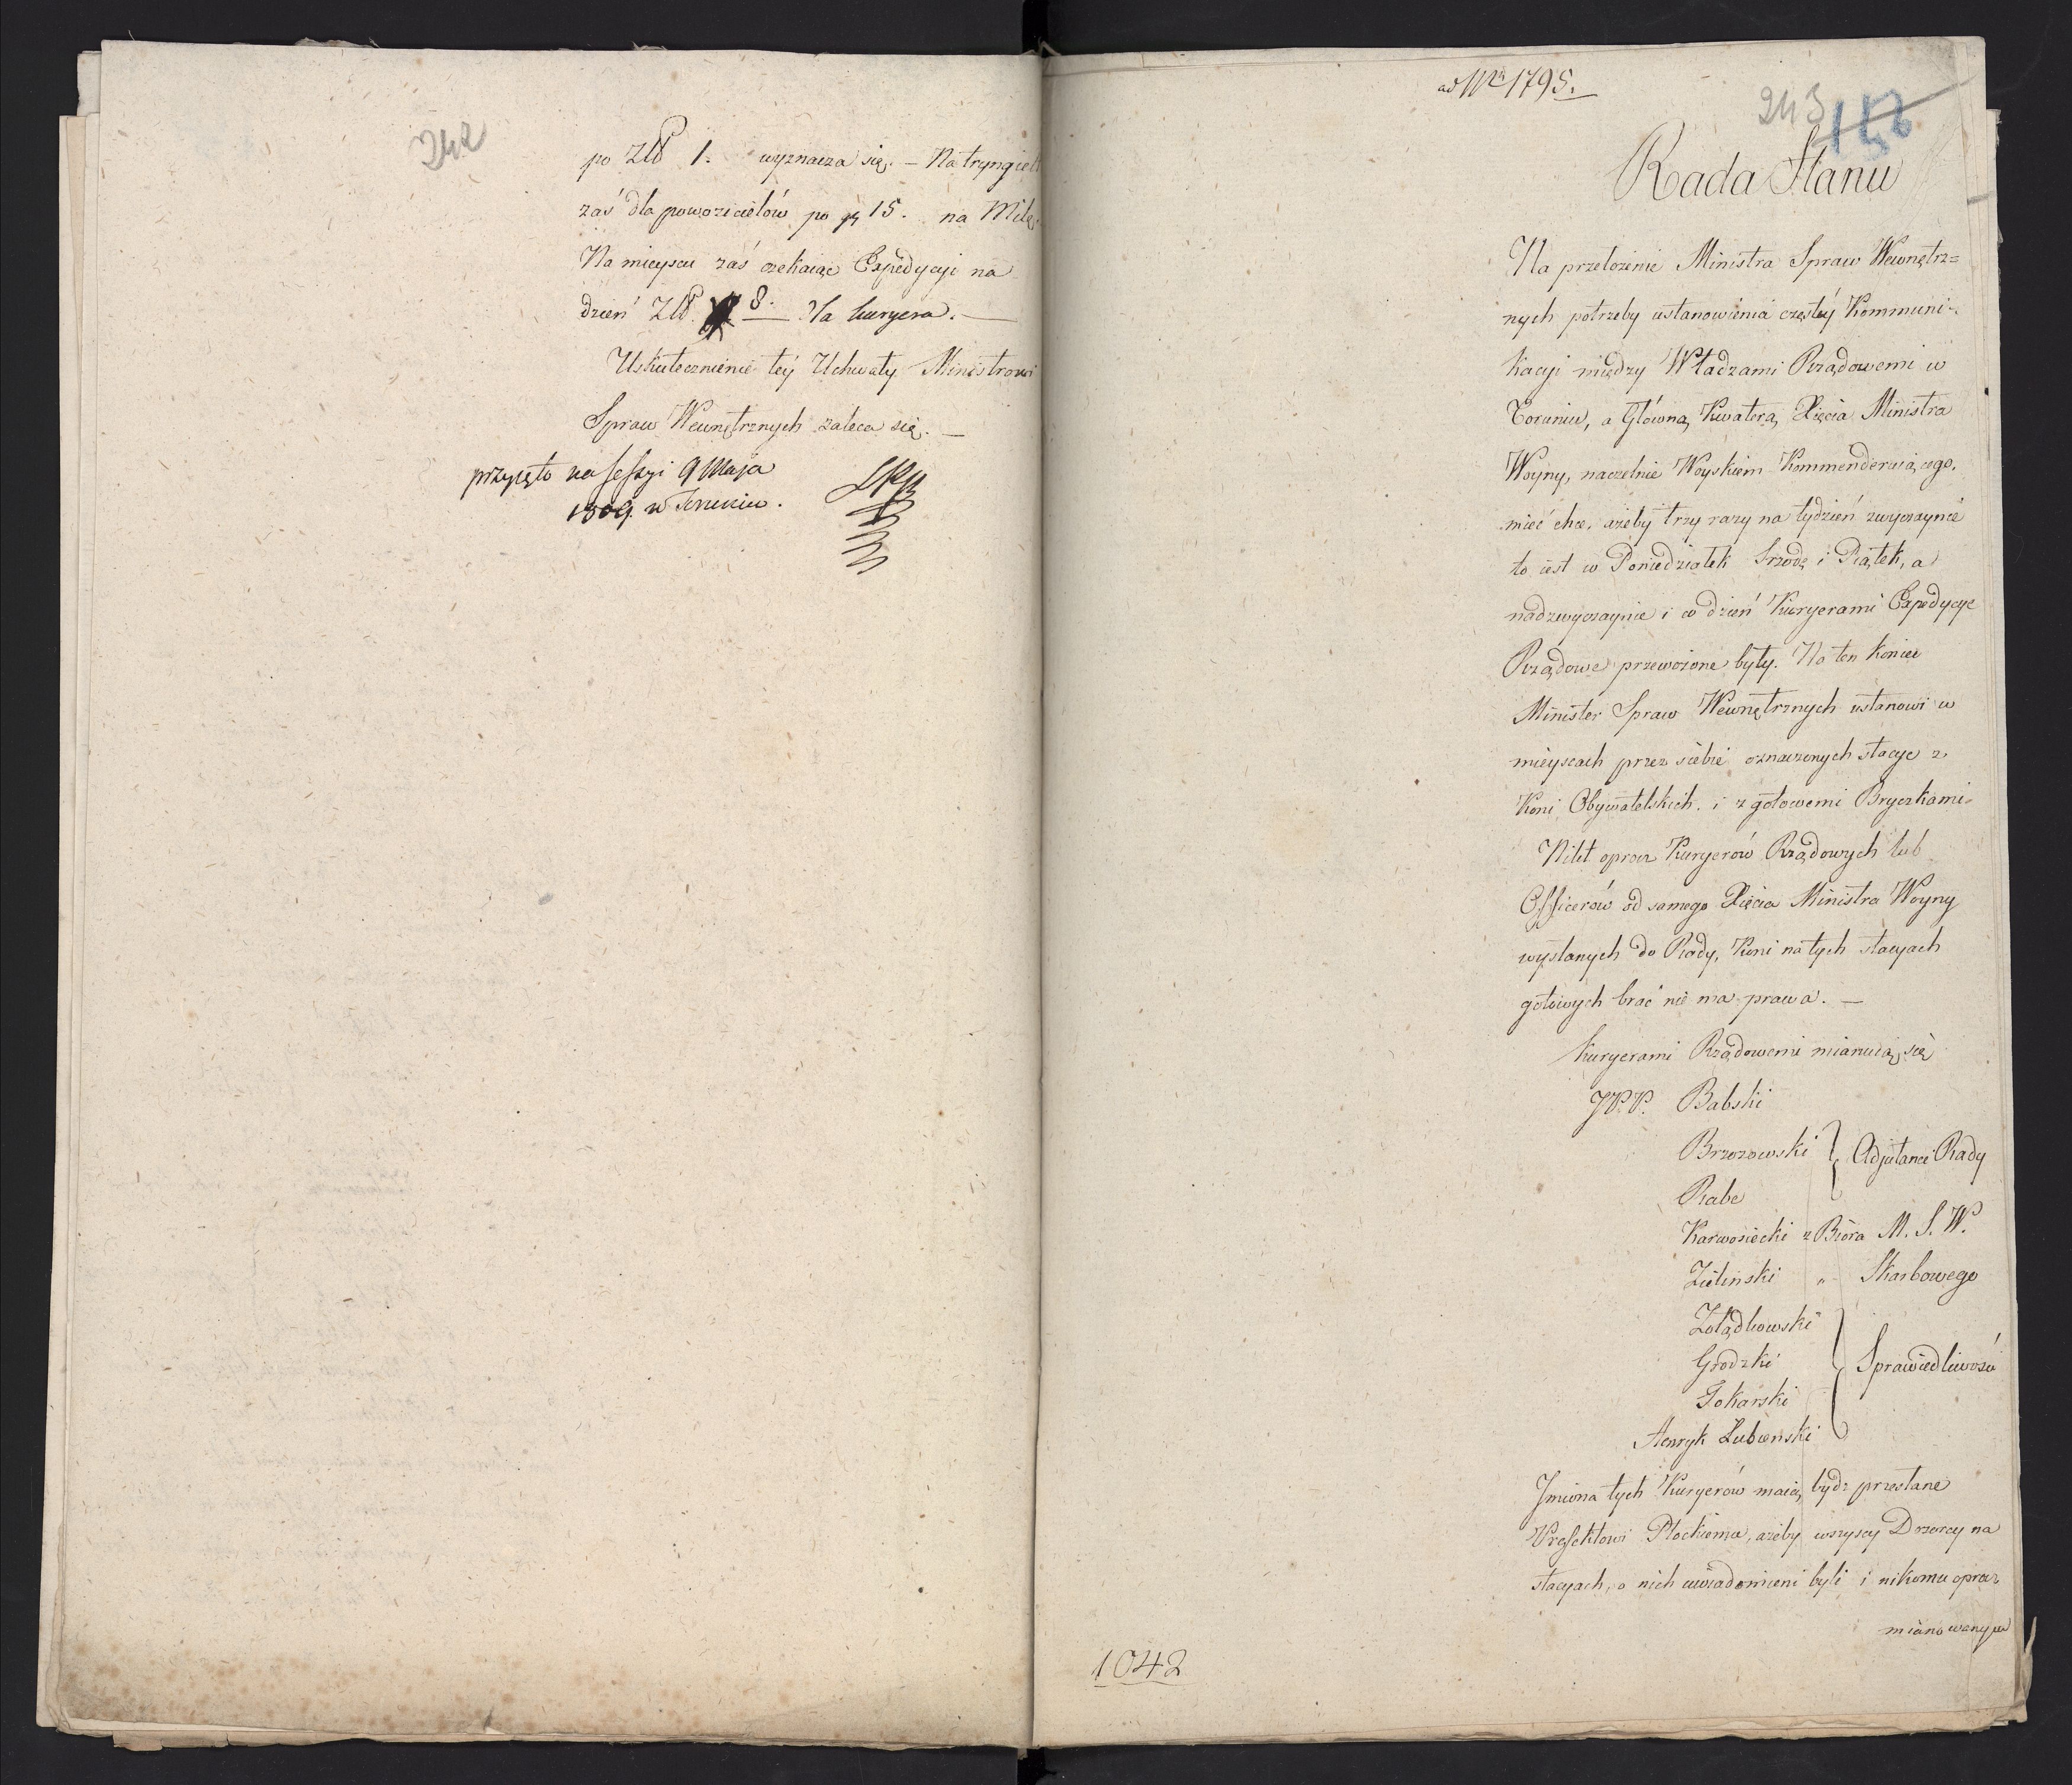 242
po Złł 1. wyznacza się. – Na tryngielt
zaś dla powozicielów po gr 15. na Milę.
Na mieyscu zaś czekaiąc Expedycyi na
dzień Złł. 8. – dla kuryera. –
Uskutecznienie tey Uchwały Ministrowi
Spraw Wewnętrznych zaleca się. –
przyięto na sessyi 9 Maja
1809. w Toruniu.
ad Nr 1795.
243
156
Rada Stanu
Na przełożenie Ministra Spraw Wewnętrz=
nych potrzeby ustanowienia częstey Kommuni-
kacyi między Władzami Rządowemi w
Toruniu, a Główną Kwaterą Xięcia Ministra
Woyny, naczelnie Woyskiem Kommenderuiącego,
mieć chce, ażeby trzy razy na tydzień zwyczaynie
to iest w Poniedziałek Srzodę i Piątek, a
nadzwyczaynie i co dzień Kuryerami Expedycye
Rządowe przewożone były. Na ten koniec
Minister Spraw Wewnętrznych ustanowi w
mieyscach przez siebie oznaczonych stacye z
Koni Obywatelskich i z gotowemi Bryczkami.
Nikt oprócz Kuryerów Rządowych lub
Officerów od samego Xięcia Ministra Woyny
wysłanych do Rady, Koni na tych stacyach
gotowych brać nie ma prawa. –
Kuryerami Rządowemi mianuią się
JPP. Babski
Brzozowski } Adjutanci Rady
Rabe
Karwosiecki z Biora M. S. W.
Zieliński " Skarbowego
Żołądkowski
Grodzki } Sprawiedliwości
Tokarski
Henryk Łubieński
Jmiona tych Kuryerów maią bydz przesłane
Prefektowi Płockiemu, ażeby wszyscy Dozorcy na
stacyach, o nich uwiadomieni byli i nikomu oprócz
mianowanym
1042